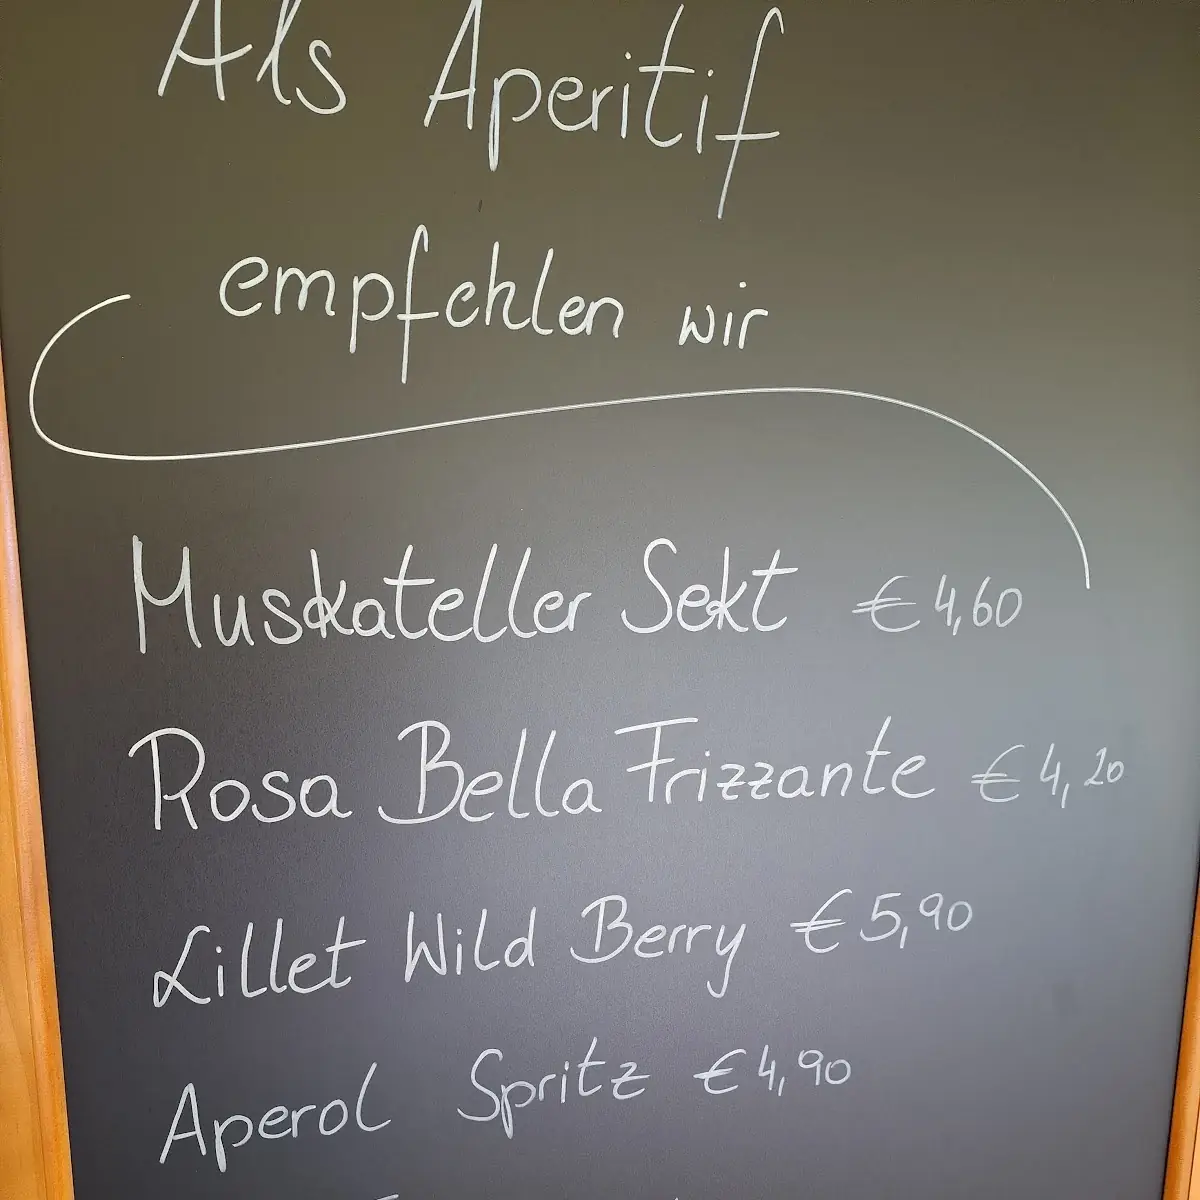 Als Aperitif
empfehlen wir
Muskateller Sekt € 4,60
Rosa Bella Frizzante € 4,20
Lillet Wild Berry € 5,90
Aperol Spritz € 4,90